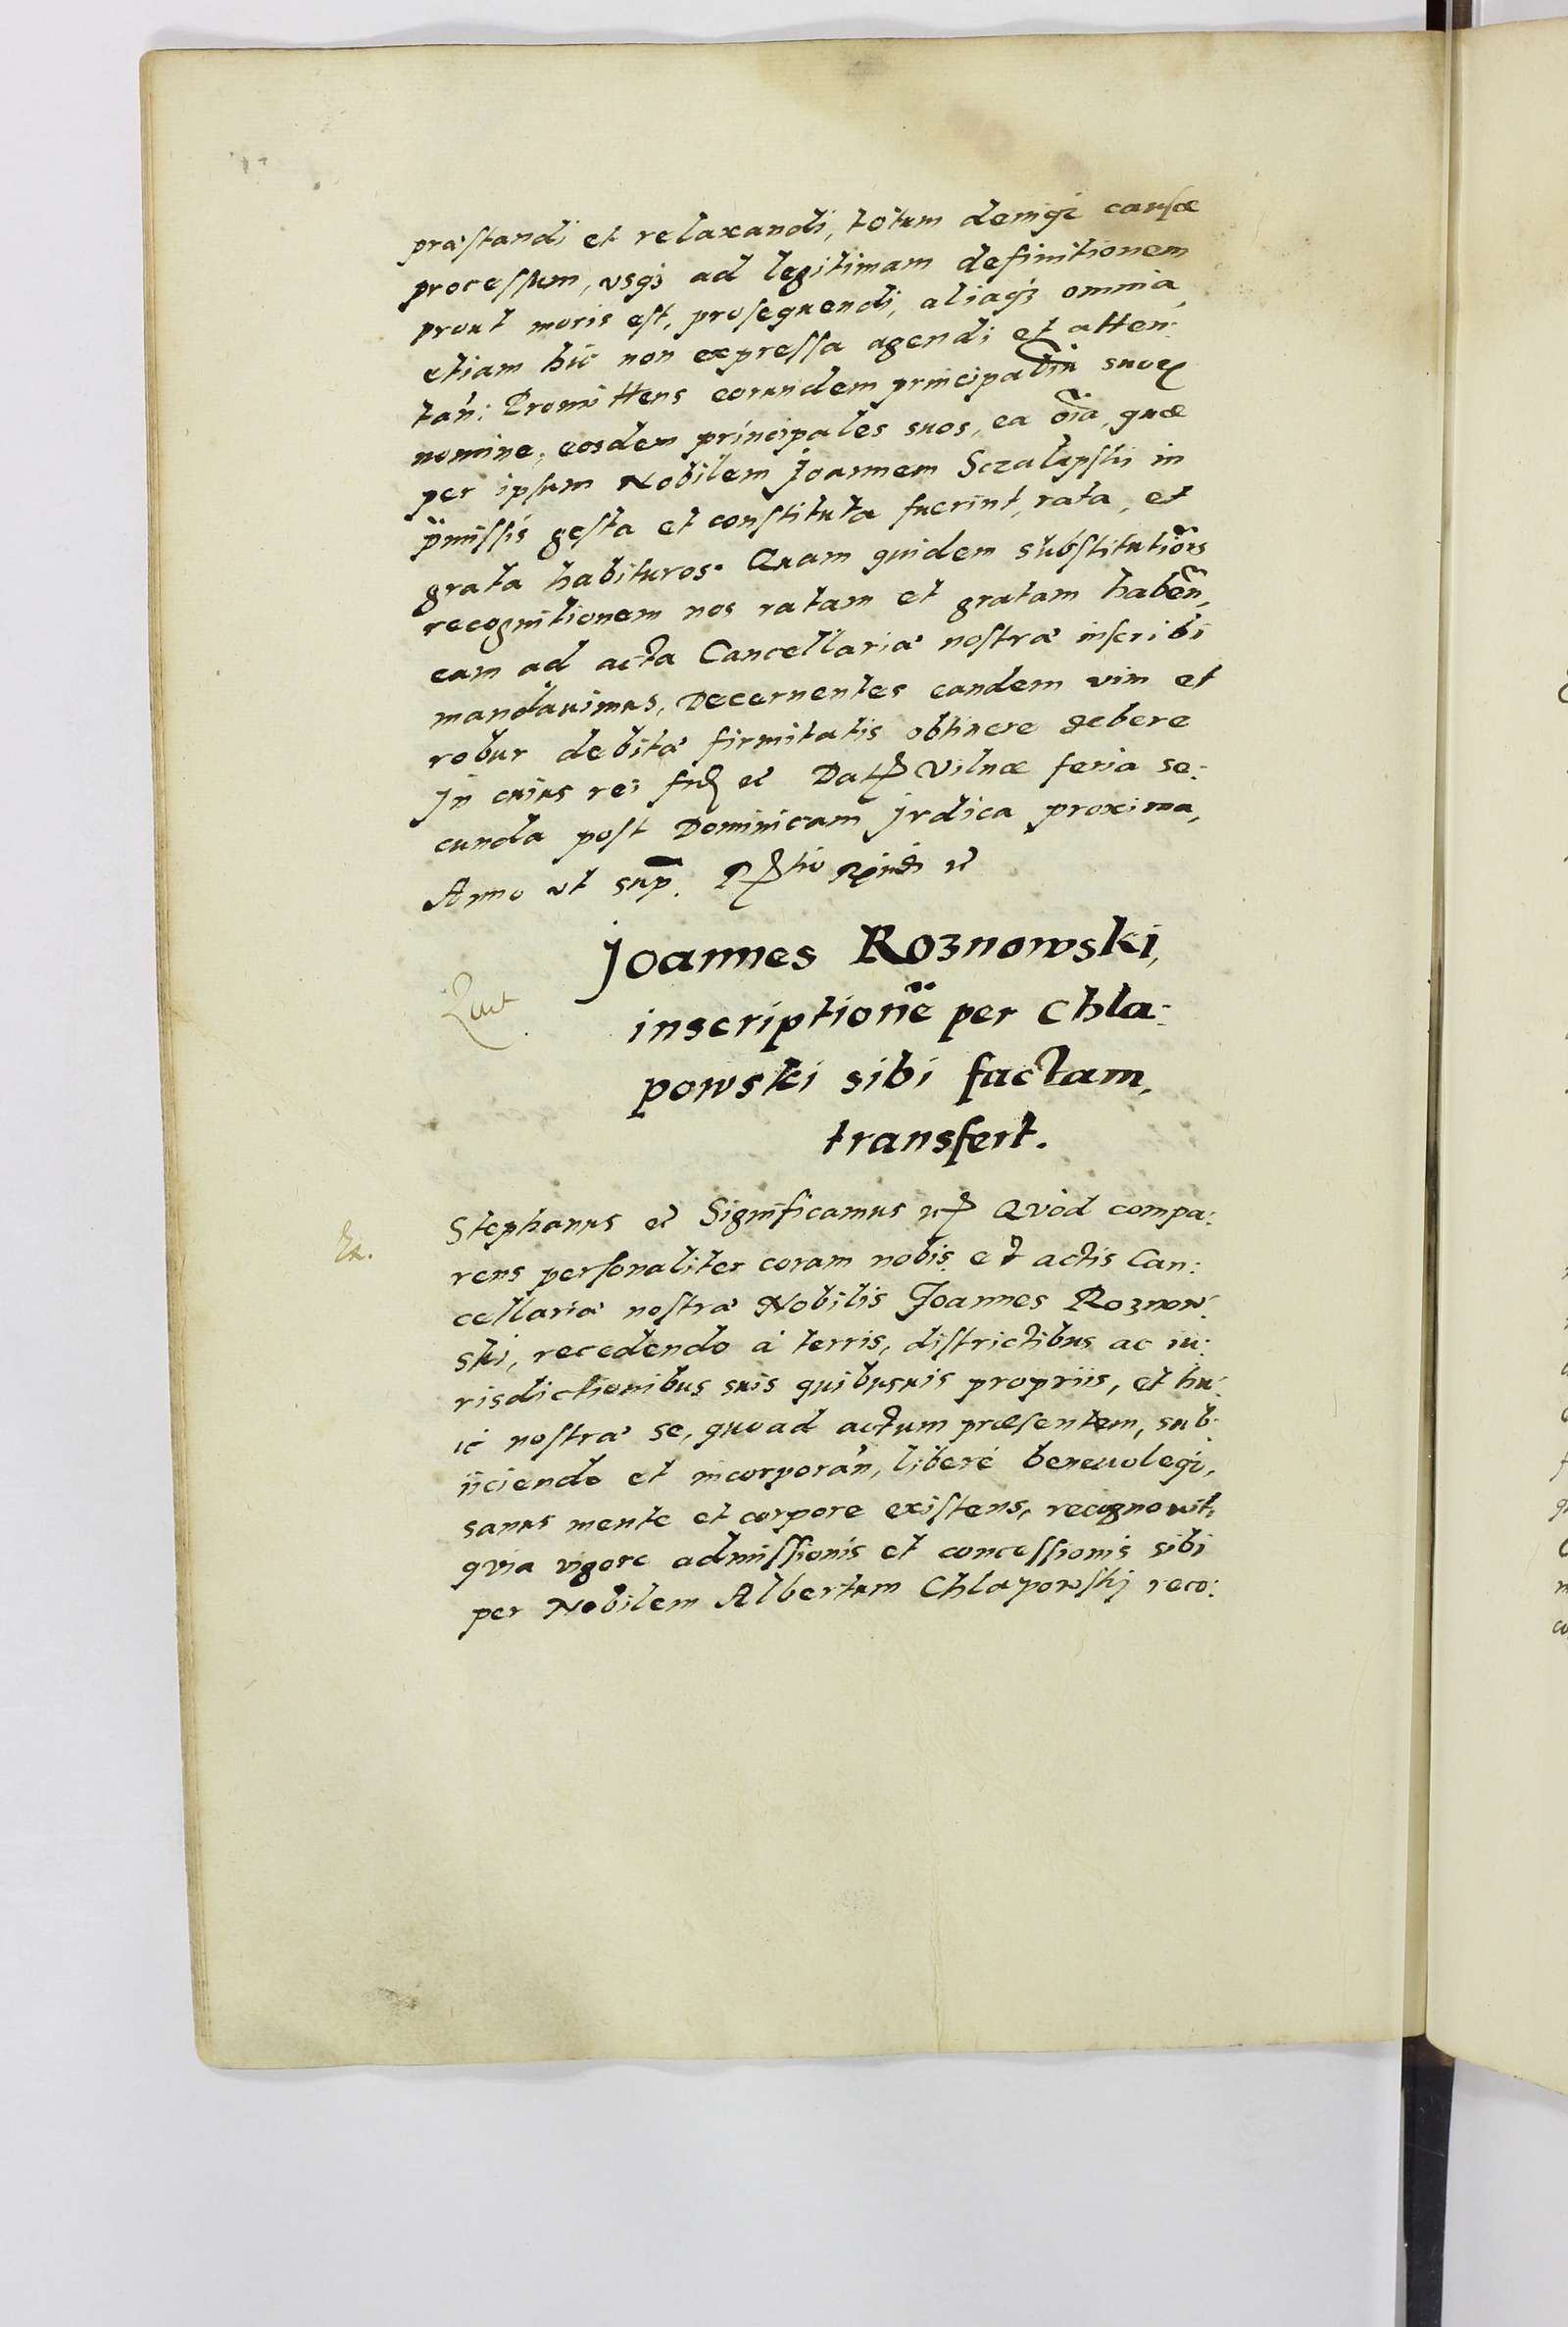 præstandi et relaxandi, totum deniqȝ causæ
processum, vsqȝ ad legitimam definitionem
prout moris est, prosequendi, aliaqȝ omnia,
etiam hic non expressa agendi et atten:
tan̄: Promittens eorundem principaliū suoꝝ
nomine, eosdem principales suos, ea oīa, quæ
per ipsum Nobilem Joannem in
p̄missis gesta et constituta fuerint, rata, et
grata habituros. Quam quidem substitutiōis
recognitionem nos ratam et gratam habeñ,
eam ad acta Cancellariæ nostræ inscribi
mandauimus, Decernentes eandem vim et
robur debitæ firmitatis obtinere debere
In cuius rei Vilnæ feria se:
cunda post Dominicam Judica proxima,
Anno vt sup̄.
Joannes Roznowski,
inscriptionē per Chla:
powski sibi factam,
transfert.
Stephanus Significamus Quòd compa:
rens personaliter coram nobis et actis Can:
cellariæ nostræ Nobilis Joannes Roznow:
ski, recedendo à terris, districtibus ac iu:
risdictionibus suis quibusuis propriis, et hu:
ic nostræ se, quoad actum præsentem, sub:
iiciendo et incorporan̄, liberè beneuoleqȝ,
sanus mente et corpore existens, recognouit,
quia vigore admissionis et concessionis sibi
per Nobilem Albertum Chlapowskj reco: